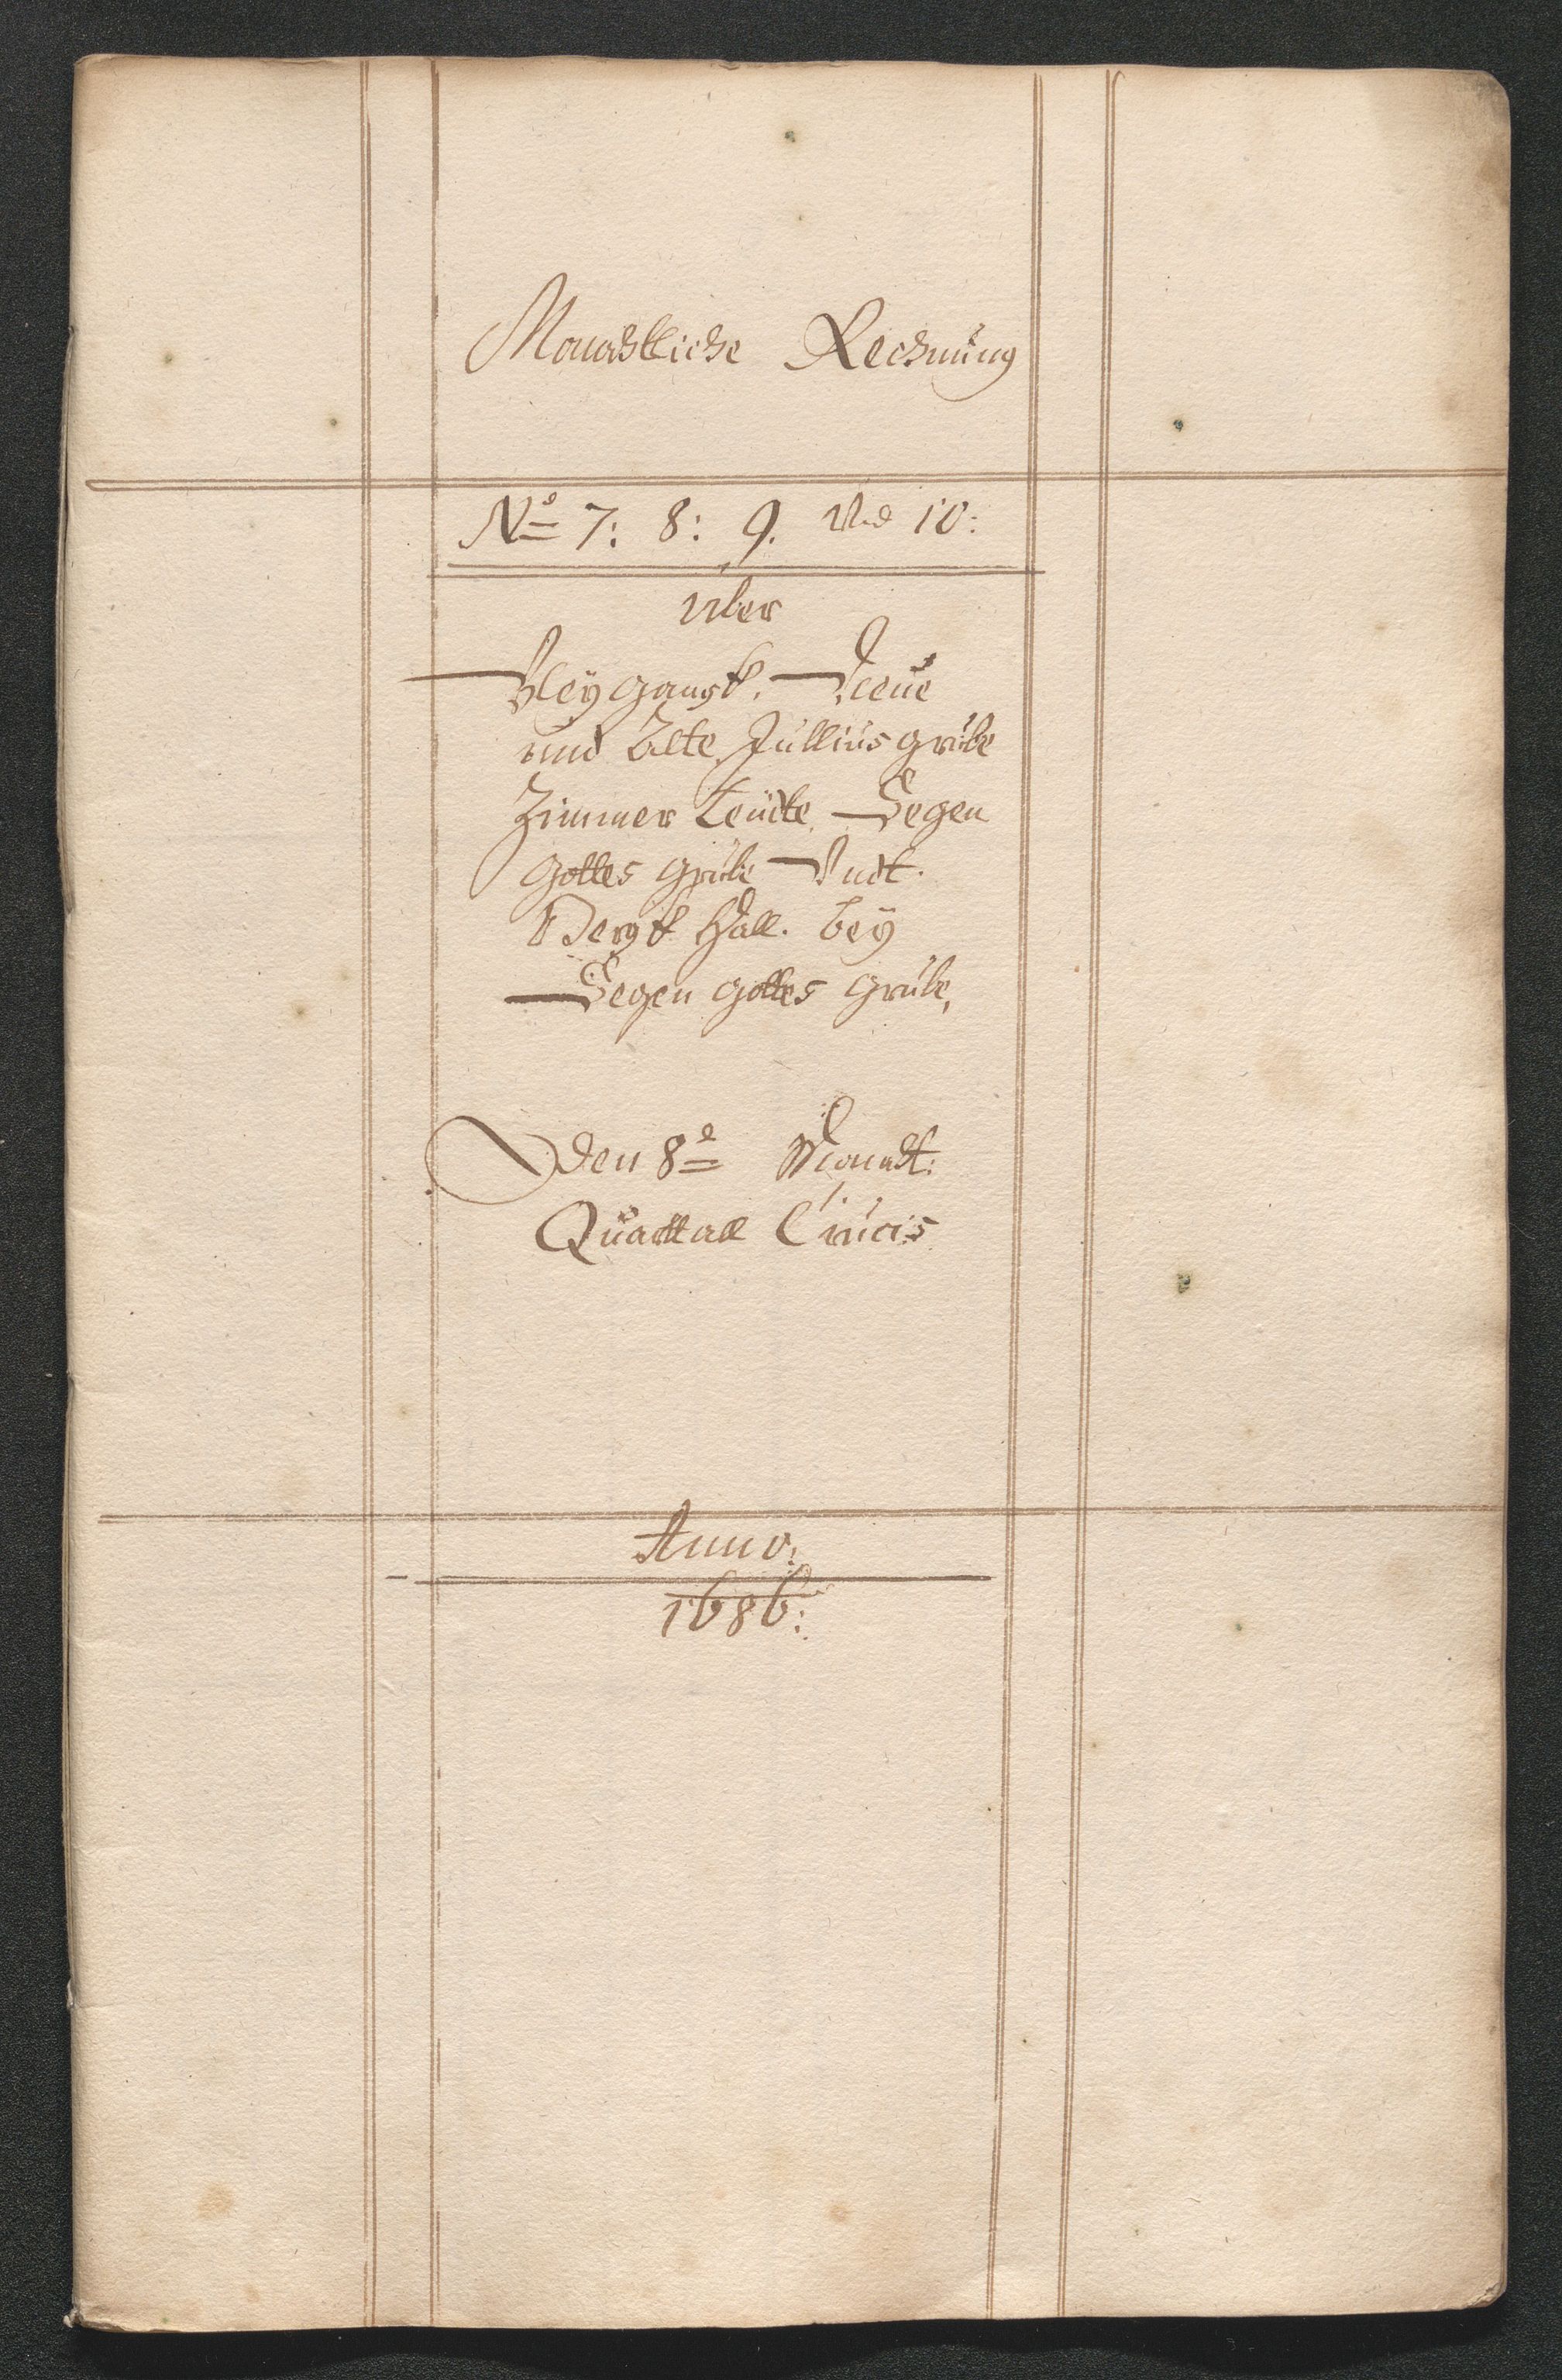 Monadtliche Rechnung
No 7: 8: 9. Vnd 10:
Uber
Bleygangk. Neue
und Alte Jullius grube
Zimmer Leudte Segen
gottes grube Vndt.
Bergk Hall. bey
Segen gottes grube,
Den 8ͤ Monadt:
Quartall Crucis
Anno:
1686: